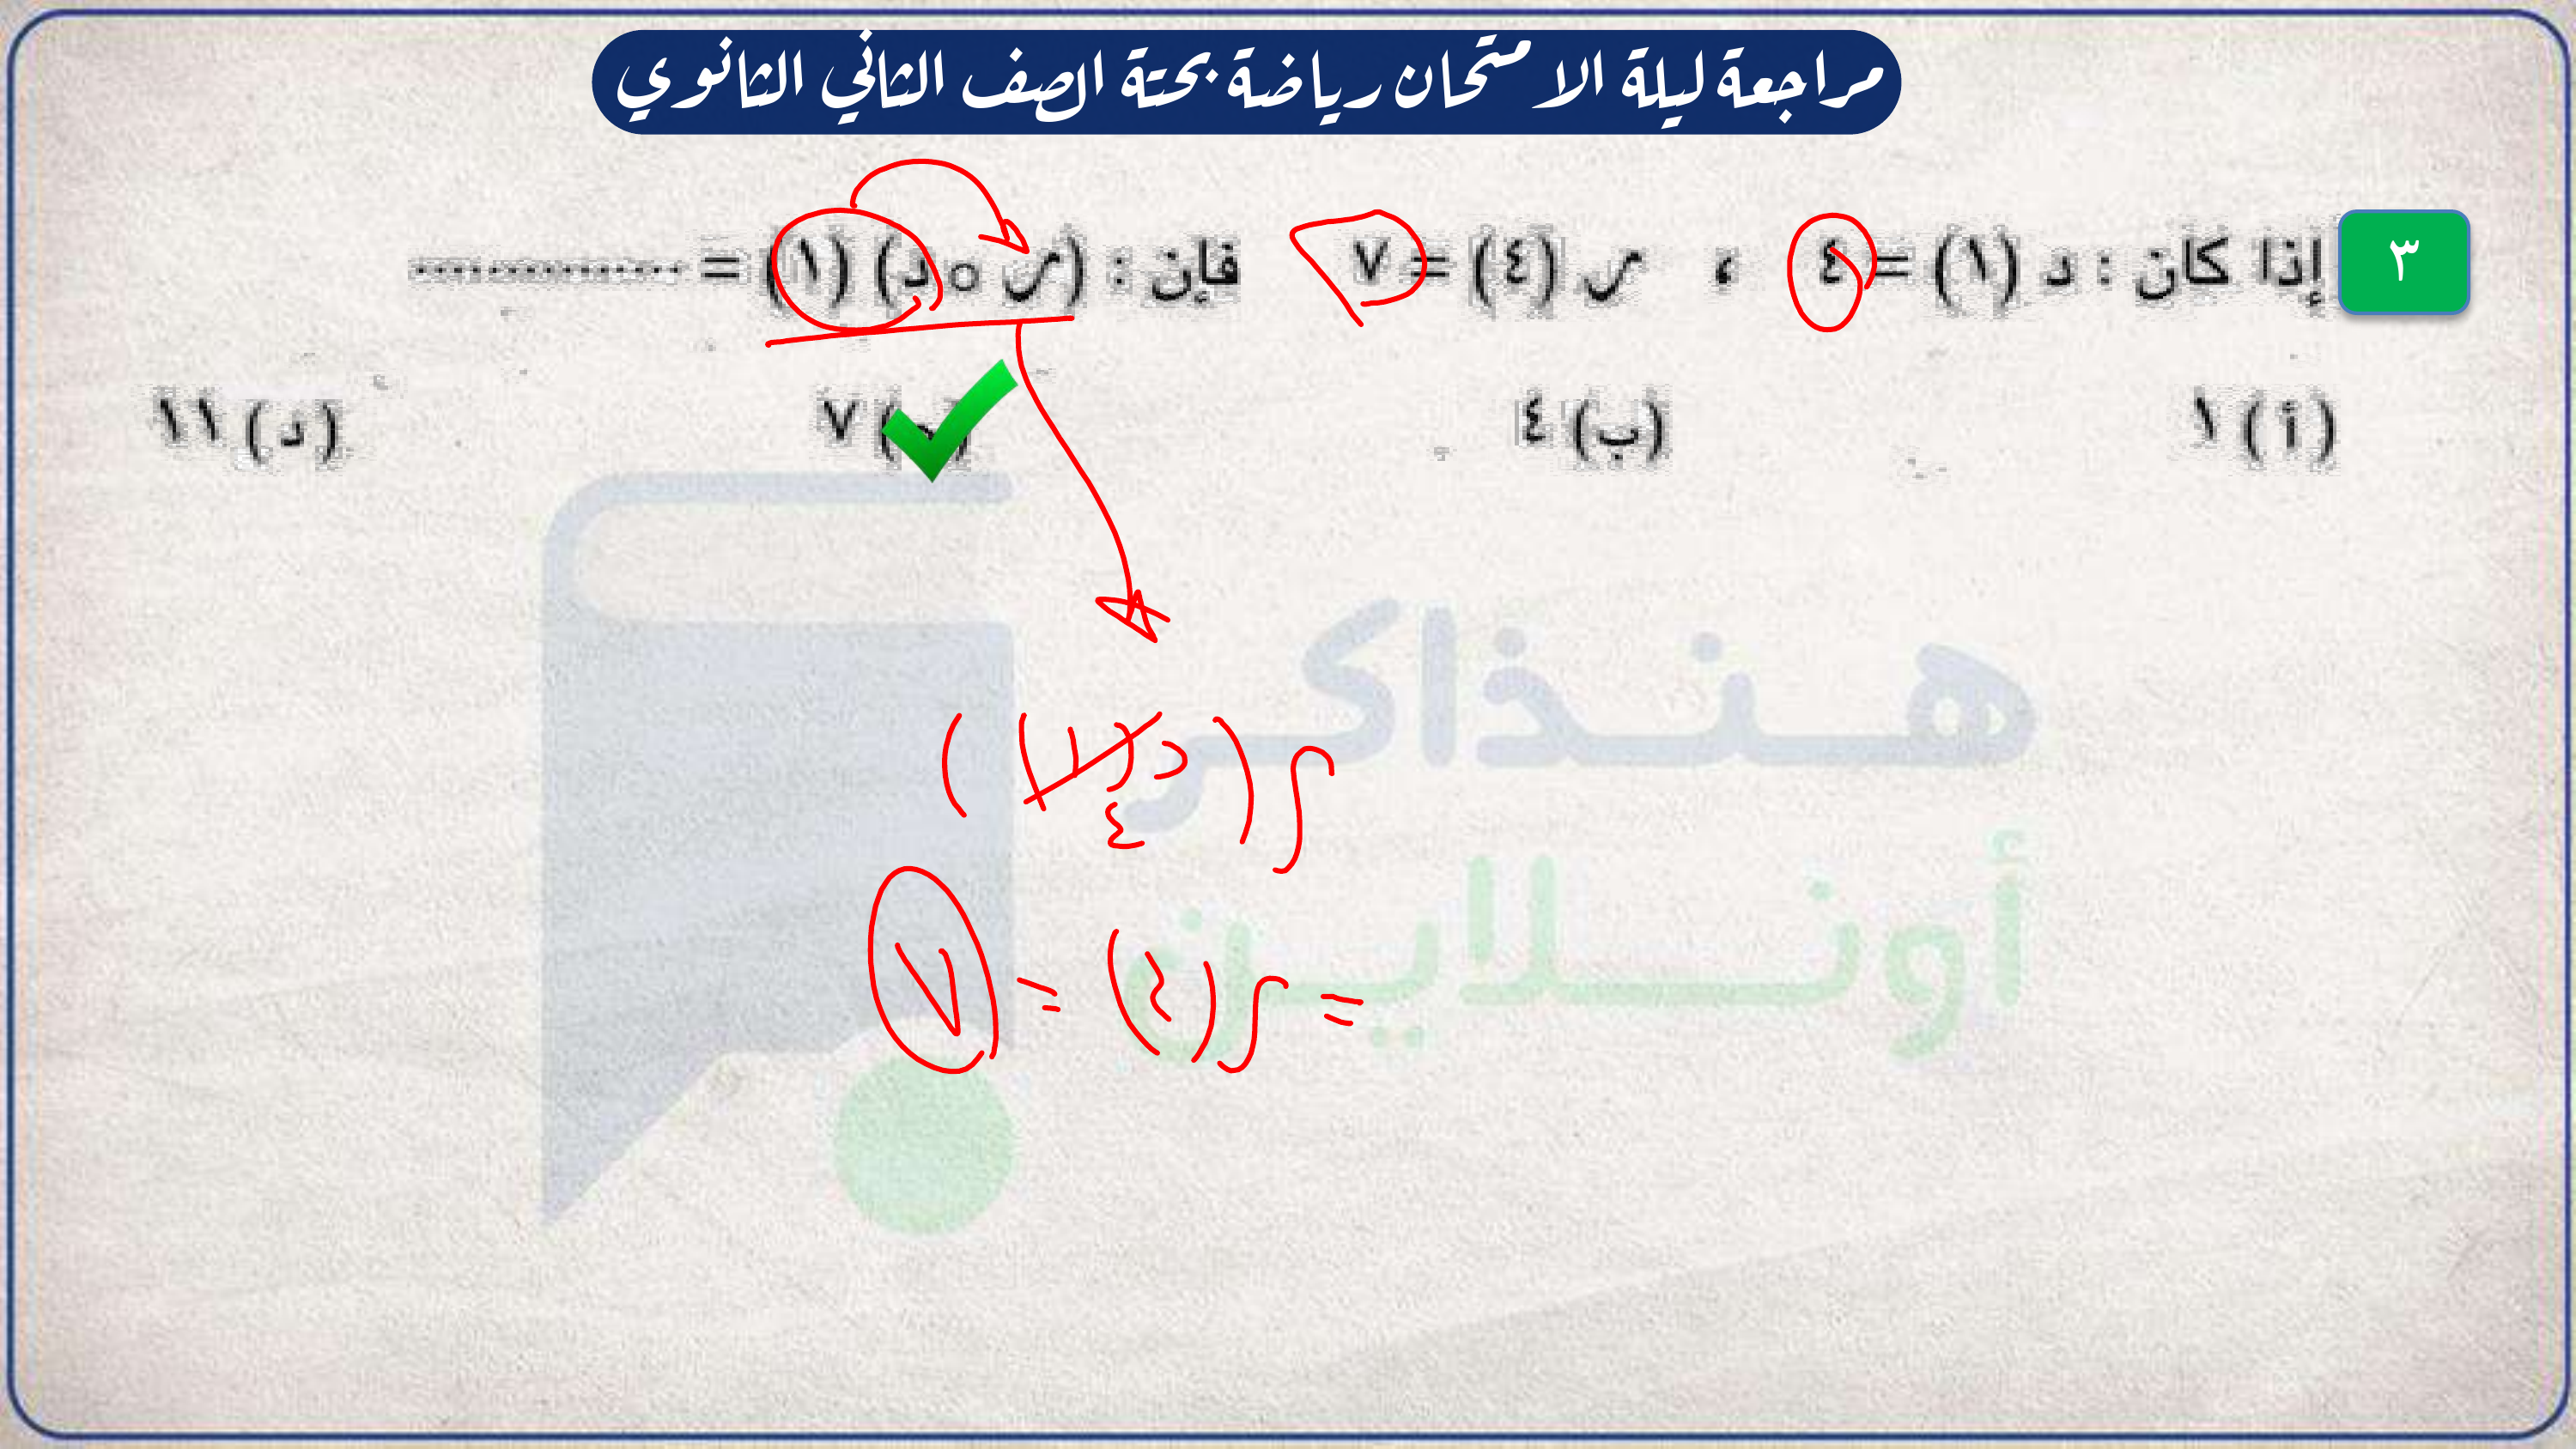 مراجعة ليلة الامتحان رياضة بحتة الصف الثاني الثانوي
٣ إذا كان : د (١) = ٤ ، ر (٤) = ٧ فإن : (ر ∘ د) (١) = ..............
(أ) ١ (ب) ٤ (ج) ٧ (د) ١١
ر ( د (١) )
٤
= ر (٤) = ٧
هنذاكر
أونلاين